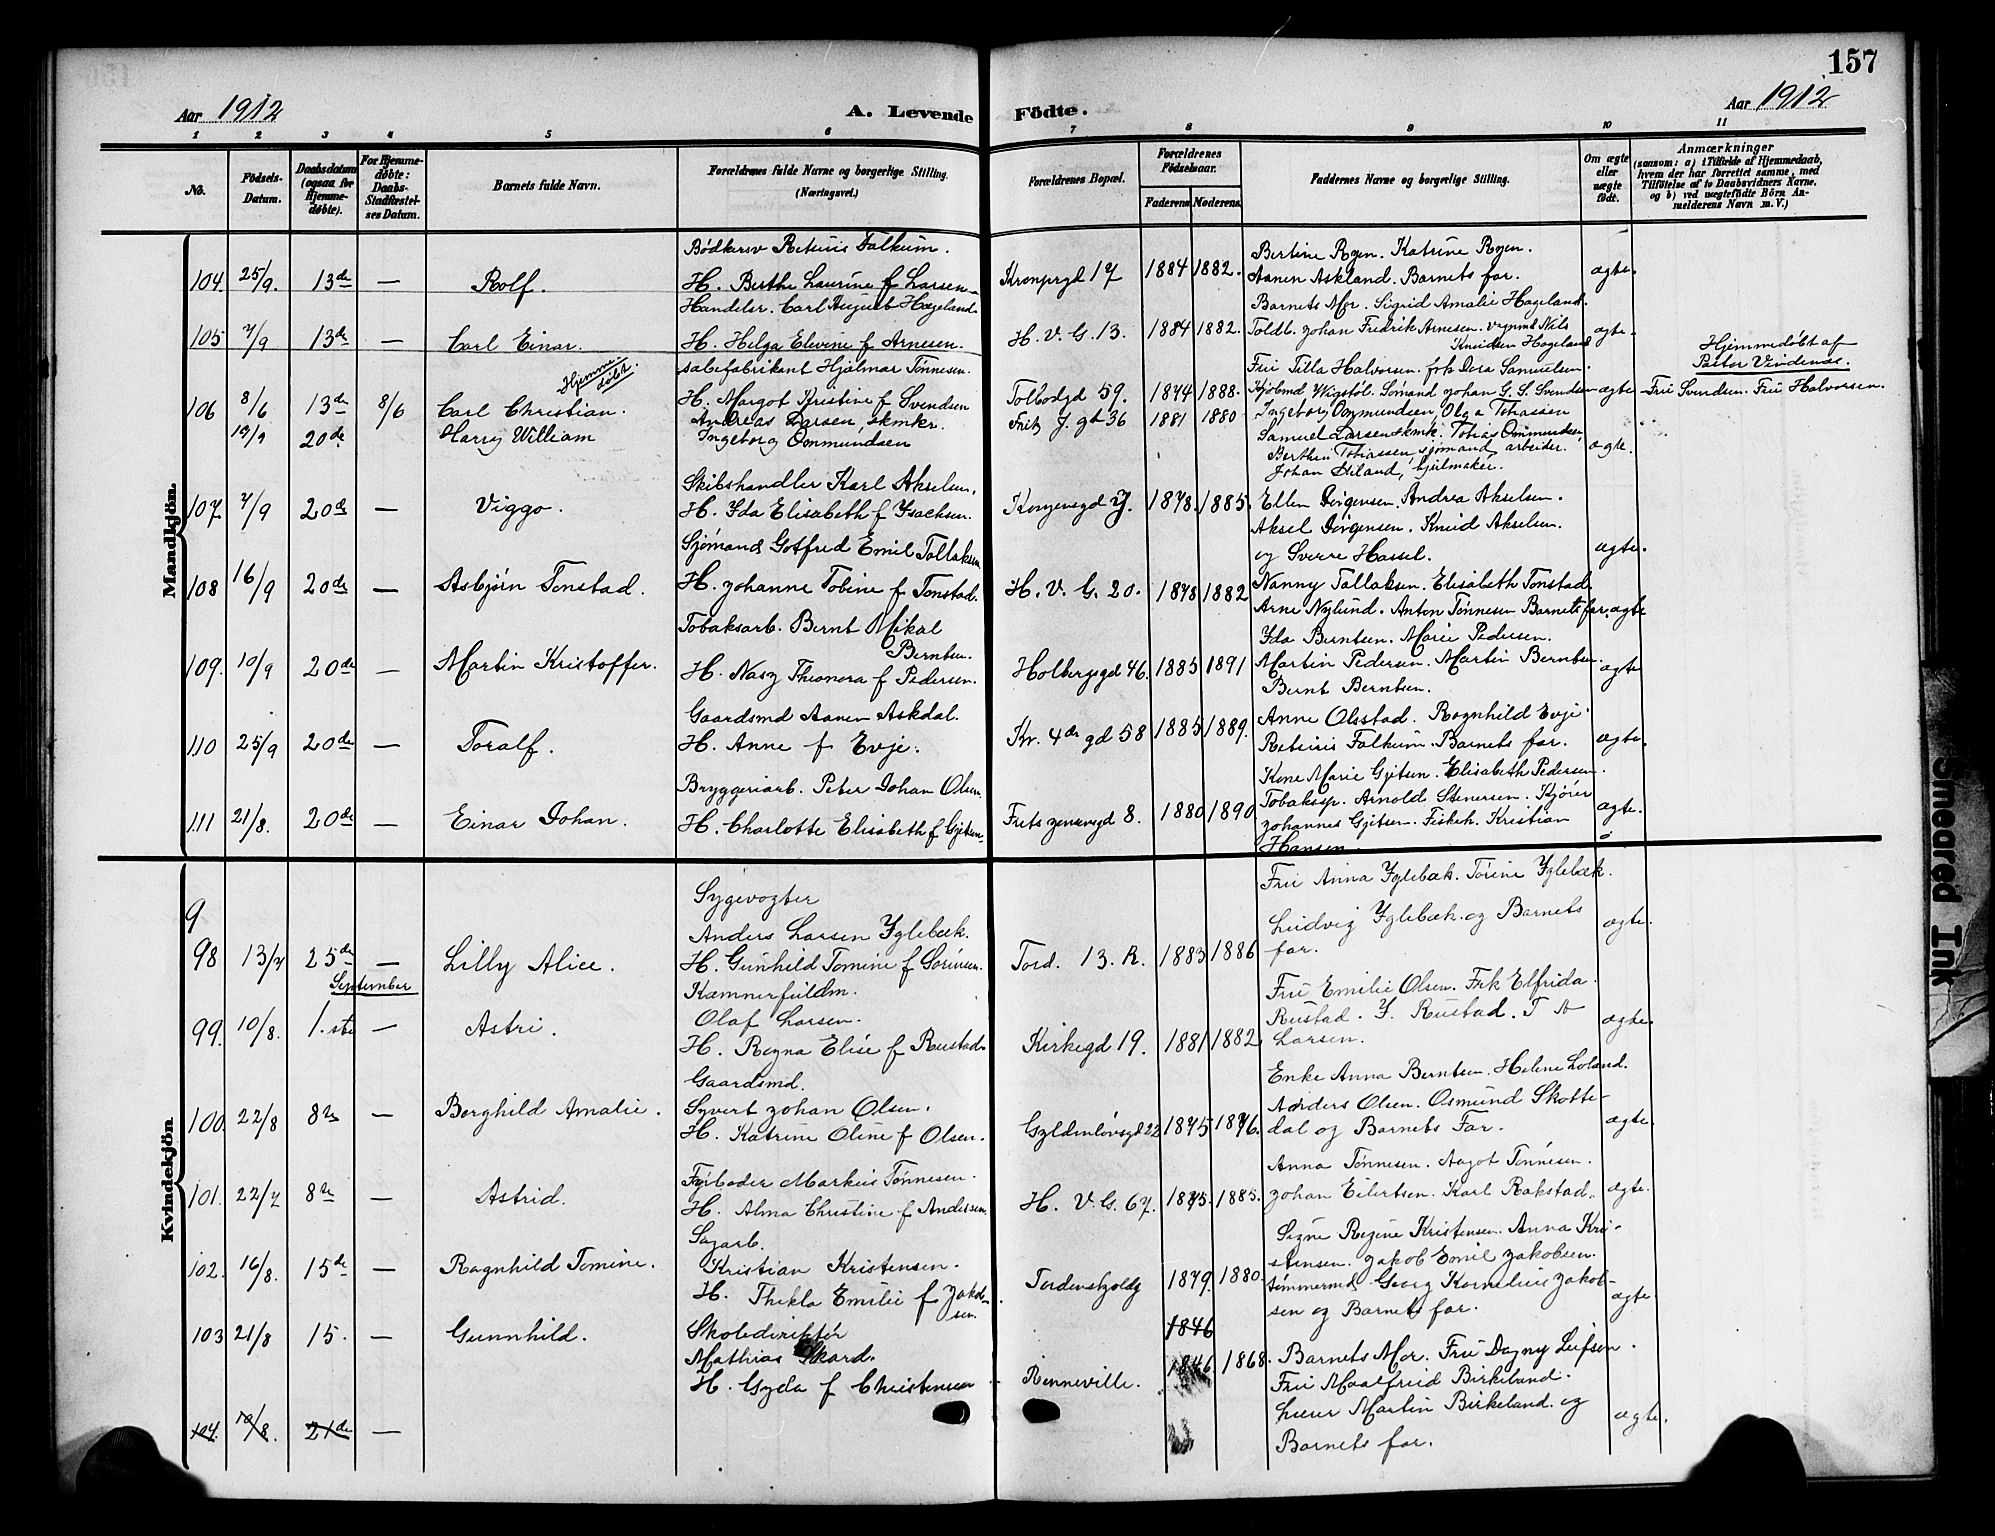 157
Aar 1912
A. Levende Födte.
Aar 1912
1 2 3 4 5 6 7 8 9 10 11
No.
Födsels-Datum.
Daabsdatum (ogsaa for Hjemme-döbte).
For Hjemme-döbte: Daabs-Stadfæstel-ses Datum.
Barnets fulde Navn.
Forældrenes fulde Navne og borgerlige Stilling. (Næringsvei.)
Forældrenes Bopæl.
Forældrenes Födselsaar.
Faderens. Moderens.
Faddernes Navne og borgerlige Stilling.
Om ægte eller uægte födt.
Anmærkninger
(saasom: a) i Tilfælde af Hjemmedaab, hvem der har forrettet samme, med Tilföielse af to Daabsvidners Navne. og b) ved uægtefödte Börn An-melderens Navn m. V.)
Mandkjön.
104. 25/9. 13de — Rolf.
Bødkersv Reteiis Falkum.
H. Berthe Laurine f Larsen
Kronprgd 17 1884 1882.
Bertine Ryen. Katrine Ryen.
Aanen Askland. Barnets far.
ægte.
105 7/9 13de — Carl Einar.
Handelsr. Carl August Hageland
H. Helga Elevine f Arnesen.
H. V. G. 13. 1884 1882.
Barnets Mor. Sigrid Amalie Hageland.
Toldb. Johan Fredrik Arnesen. Nils
Knudsen Hageland
ægte.
106 8/6 13de 8/6 Carl Christian.
Hjemmedøbt.
Sæbefabrikant Hjalmar Tønnesen.
H. Margot Kristine f Svendsen
Tolbodgd 59. 1874 1888.
Fru Tilla Halvorsen. frk Dora Samuelsen.
Hjalmd Wigstøl. Sømand Johan G. S. Svendsen
ægte
Hjemmedøbt af
Pastor Vindenæs.
Fru Svendsen. Fru Halvorsen.
13/9 20de Harry William
Andreas Larsen, skmkr.
Ingeborg Ommundsen
Fritz J. gt 36 1881 1880
Ingeborg Ommundsen, Olga Tobiassen
Samuel Larsen skmk. Tobias Ommundsen,
Berthin Tobiassen, sjømand, arbeider.
Johan Stiland, hjulmaker.
ægte.
107 7/9 20de — Viggo.
Skibshandler Karl Akselsen.
H. Ida Elisabeth f Isachsen.
Kongensgd 1878. 1885.
Ellen Jørgensen. Andrea Akselsen.
Aksel Jørgensen. Knud Akselsen.
og Sverre Hassel.
ægte.
108 16/9 20de — Asbjørn Tonstad.
Sjømand Gotfred Emil Tallaksen
H. Johanne Tobine f Tonstad.
H. V. G. 20. 1878 1882
Nanny Tallaksen. Elisabeth Tonstad
Arne Nylund. Anton Tønnesen Barnets far.
ægte
109. 10/9 20de — Martin Kristoffer.
Tobaksarb. Bernt Mikal
Berntsen.
H. Nasz Theonora f Pedersen.
Holbergsgd 46. 1885 1891
Ida Berntsen. Marie Pedersen.
Martin Pedersen. Martin Berntsen.
Bernt Berntsen.
ægte
110 25/9 20de — Toralf.
Gaardsmd Aanen Askdal.
H. Anne f Evje.
Kv. 4de gd 58 1885 1889.
Anne Olsstad. Ragnhild Evje.
Reteiis Falkum. Barnets far.
ægte.
111 21/8. 20de — Einar Johan.
Bryggeriarb. Peter Johan Olsen
H. Charlotte Elisabeth f Gjitsen
Frets Jensensgd 8. 1880 1890
Kone Marie Gjitsen. Elisabeth Pedersen.
Tobaksp. Arnold Stenersen. Kjører
Johannes Gjitsen. Fiskeh. Kristian
Hansen.
ægte.
Kvindekjön
9
98 13/7 25de — Lilly Alice.
Sygevogter
Anders Larsen Yglebæk.
H. Gunhild Tomine f Sørensen.
Tord. 13. R. 1883 1886
Fru Anna Yglebæk. Torine Yglebæk.
Ludvig Yglebæk. og Barnets
far.
ægte.
September
99. 10/8. 1.ste — Astri.
Kæmnerfuldm.
Olaf Larsen.
H. Ragna Elise f Rustad.
Kirkegd 19. 1881 1882
Fru Emilie Olsen. Frk Elfrida
Rustad. J. Rustad. T
Larsen.
ægte.
100. 22/8 8de — Borghild Amalie.
Gaardsmd.
Syvert Johan Olsen.
H. Katrine Oline f Olsen.
Gyldenløvsgd 22 1875 1876.
Enke Anna Berntsen. Helene Loland.
Anders Olsen. Osmund Skotte-
dal og Barnets Far.
ægte.
101. 22/7 8de — Astrid.
Fyrbøder Markus Tønnesen.
H. Alma Christine f Andersen.
H. V. G. 67. 1875. 1885.
Anna Tønnesen. Aagot Tønnesen.
Johan Eilertsen. Karl Rakstad.
ægte.
102. 16/8. 15de — Ragnhild Tomine.
Sagarb.
Kristian Kristensen.
H. Thekla Emilie f Jakob-
sen.
Tordenskjoldg 1879. 1880.
Signe Regine Kristensen. Anna Kri-
stensen. Jakob Emil Jakobsen.
tømmermd Georg Kornelius Jakob-
sen og Barnets far.
ægte.
103 21/8 15. — Gunnhild.
Skoledirektør
Mathias Skard.
H. Gyda f Christensen
Rinneville. 1846
1846 1868.
Barnets Mor. Fru Dagny Leifsen.
Fru Maalfrid Birkeland.
Lærer Martin Birkeland. og
Barnets far.
ægte.
104. 10/8. 21de —
Smeared Ink